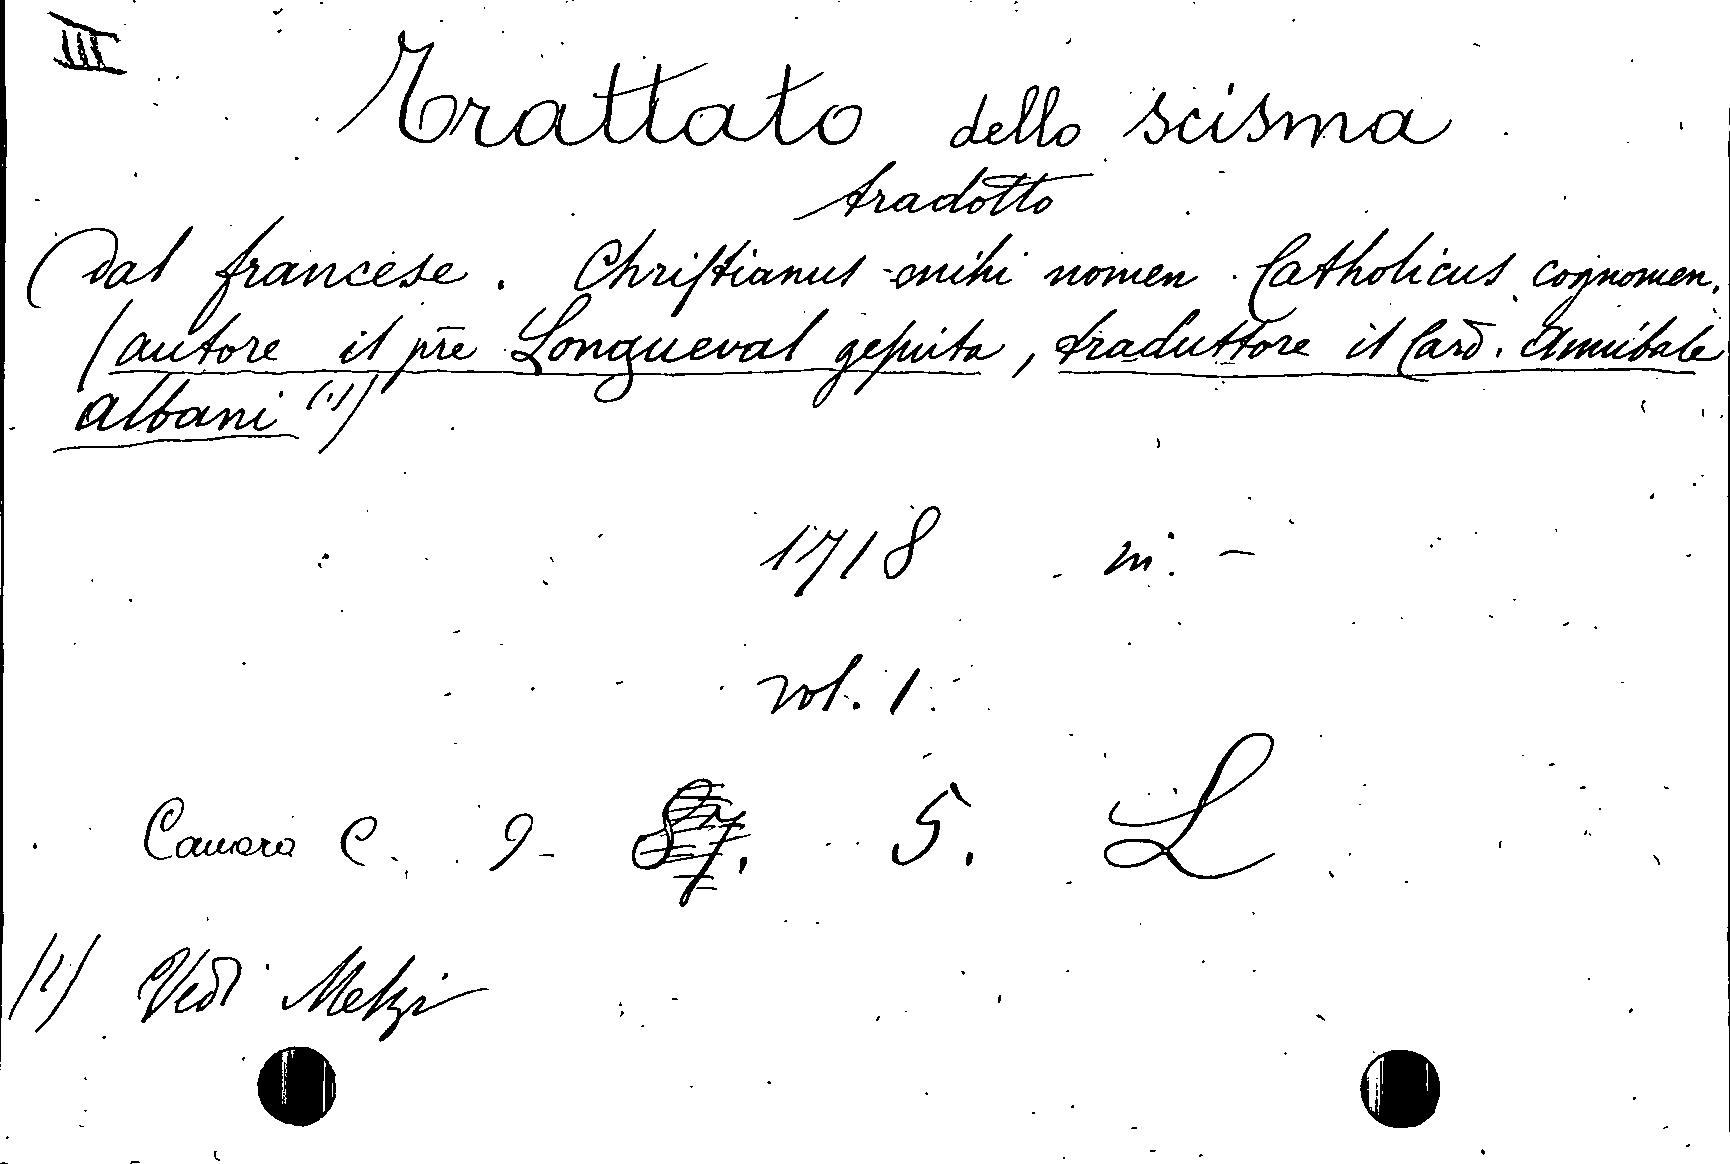 III
Trattato dello scisma
tradotto
(dal francese. Christianus mihi nomen Catholicus cognomen.
(autore il pre Longueval gesuita, traduttore il Card. Annibale
Albani (1))
1718 in. -
vol. 1.
Camera C. 9- 5. L
(1) Vedi Melzi